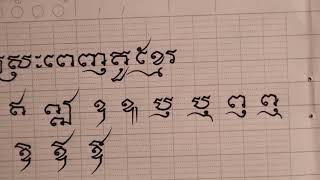 ស្រៈពេញតួខ្មែរ
ឥ ឦ ឧ ឩ ឫ ឬ ឭ ឮ